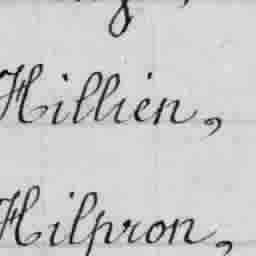 Hillien,
Hilpron,